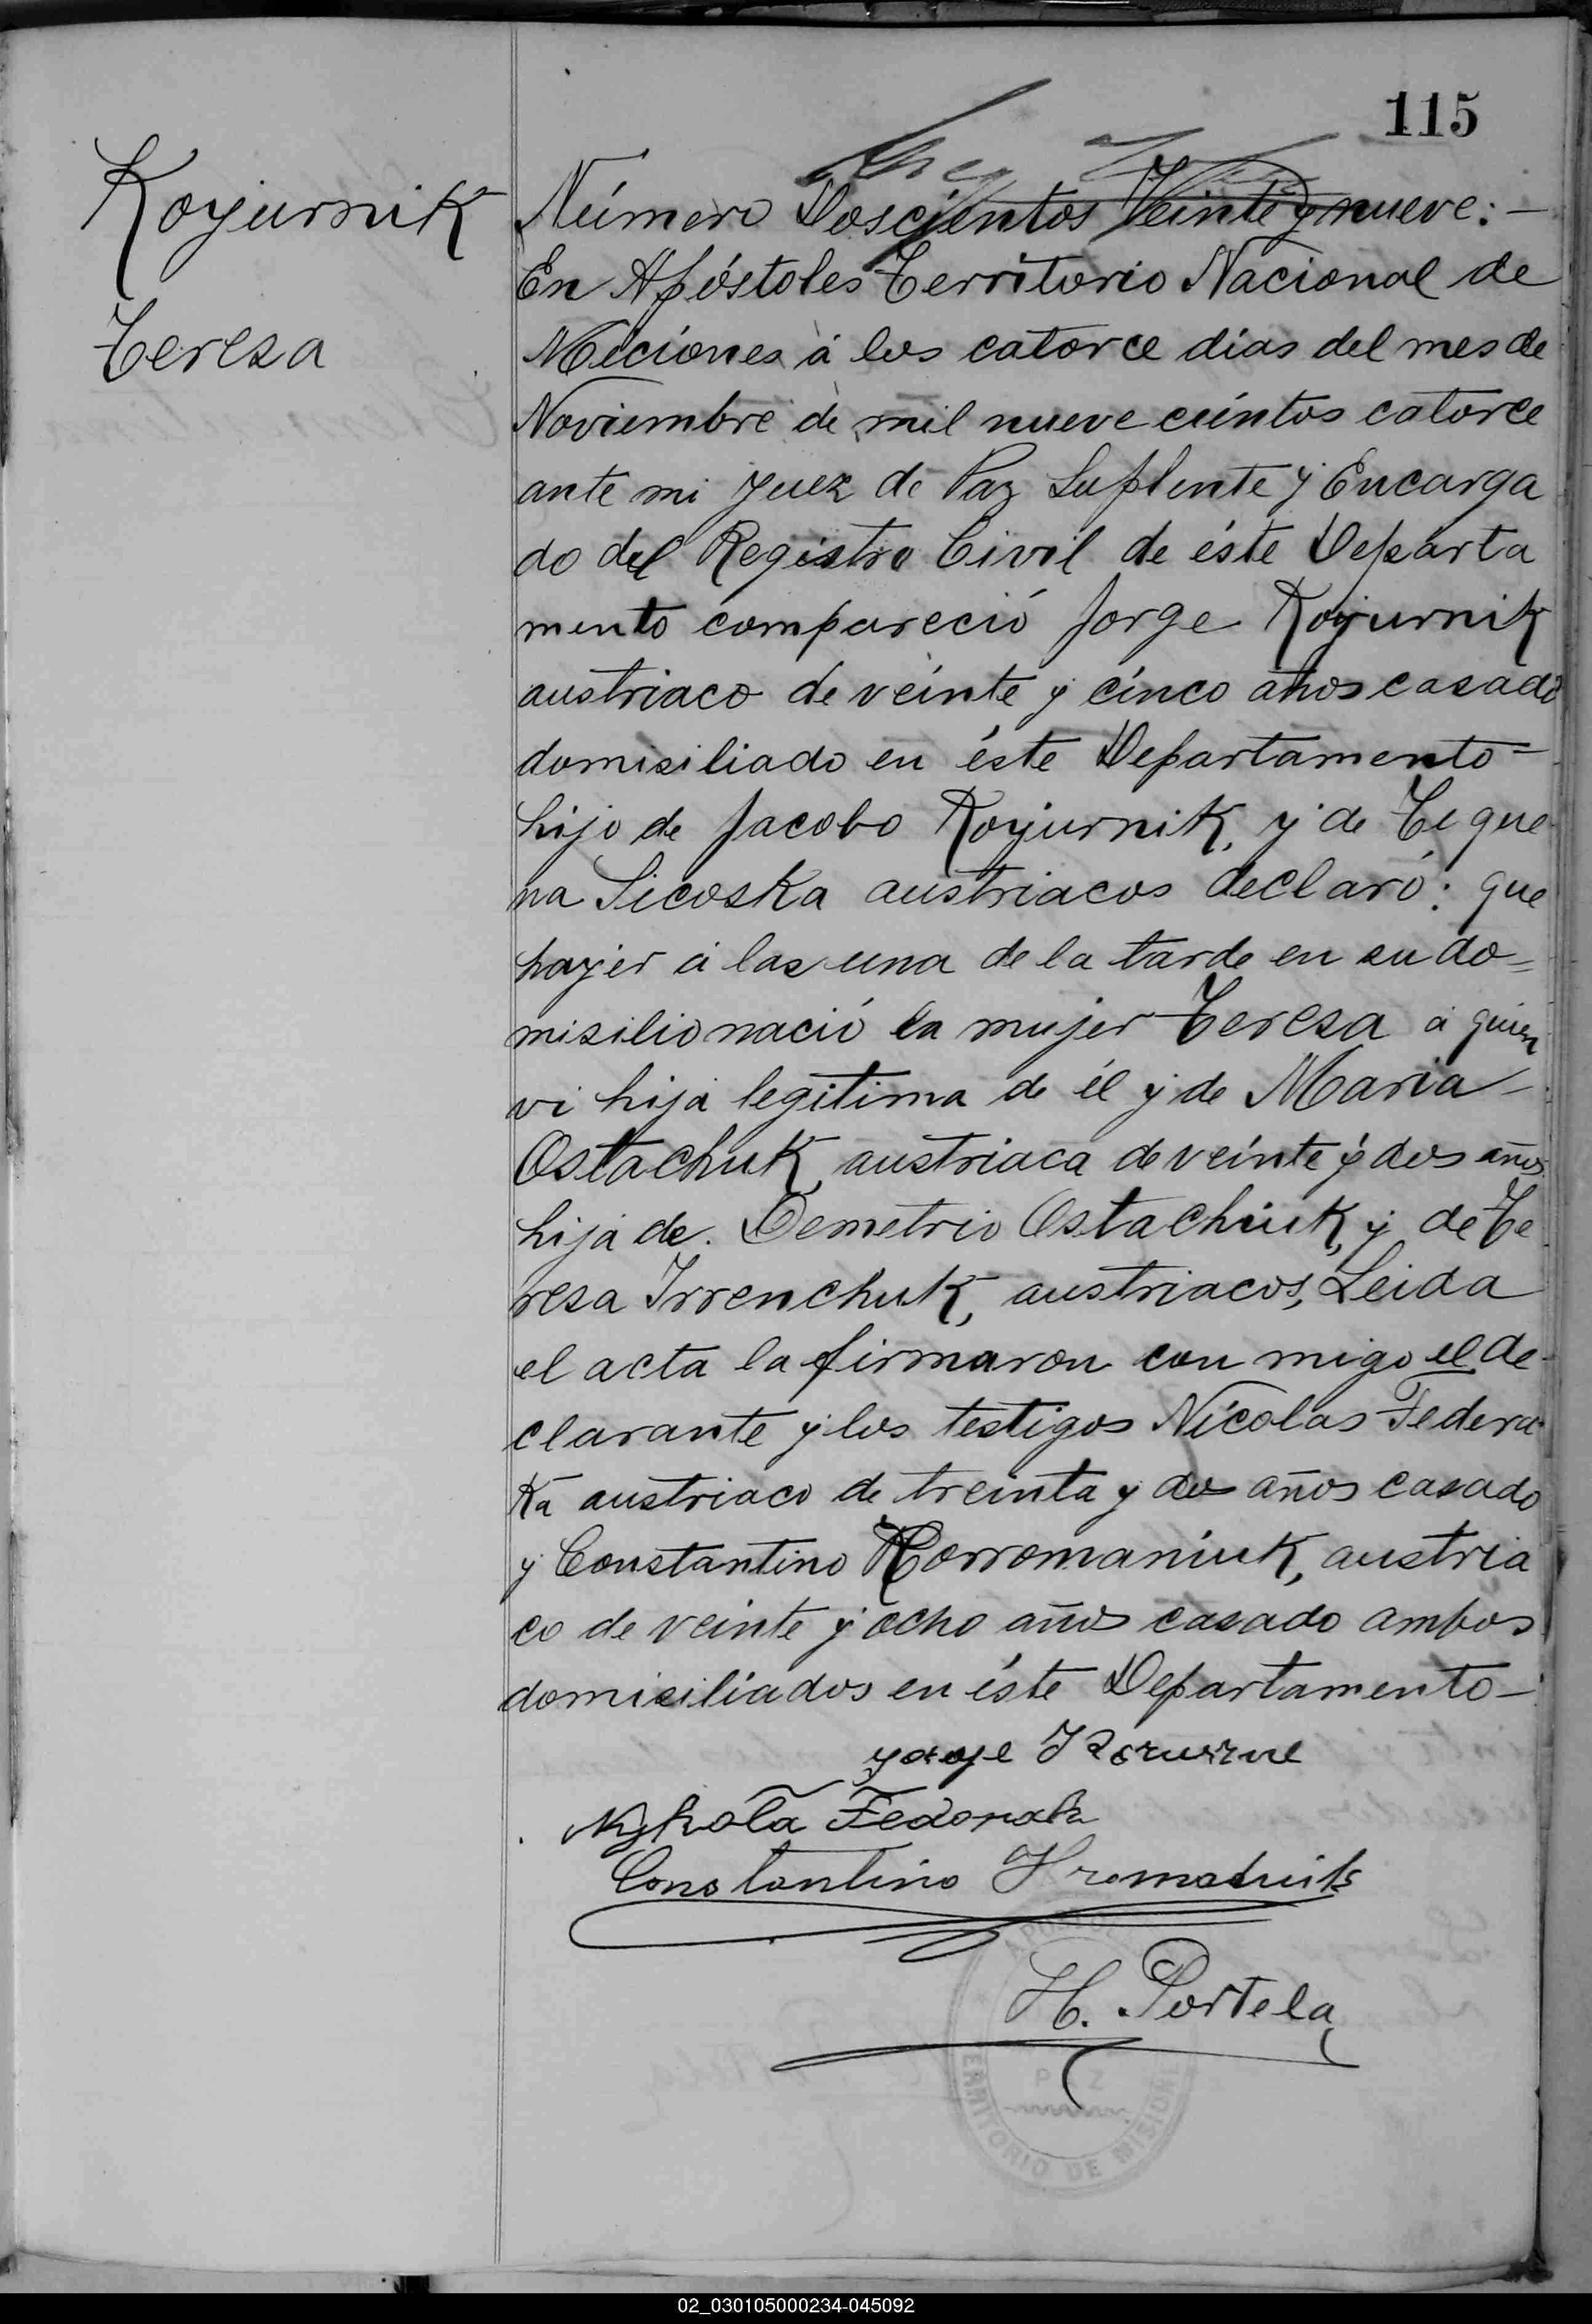 115
Koyurnik
Teresa
Número Doscientos Veinte y nueve: —
En Apóstoles Territorio Nacional de
Miciones á los catorce días del mes de
Noviembre de mil nueve cientos catorce
ante mi Juez de Paz Suplente y Encarga
do del Registro Civil de éste Departa
mento compareció Jorge Koyurnik
austriaco de veinte y cinco años casado
domisiliado en éste Departamento =
hijo de Jacobo Koyurnik, y de Te que
na Sicoska austriacos declaró: que
hayer á las una de la tarde en su do=
misilio nació la mujer Teresa á quien
vi hija legitima de él y de Maria —
Ostachuk, austriaca de veinte y dos años
hija de Demetrio Ostachiuk, y de Te
resa Irrenchuk, austriacos, Leida
el acta la firmaron con migo el de-
clarante y los testigos Nícolas Federa-
ka austriaco de treinta y dos años casado
y Constantino Horromaniuk, austria
co de veinte y ocho años casado ambos
domisiliados en éste Departamento —
Nykola Fedorak
Constantino
H. Portela
PAZ
TERRITORIO DE MISIONES
02_030105000234-045092